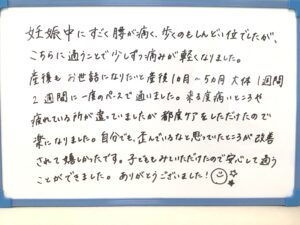 妊娠中にすごく腰が痛く、歩くのもしんどい位でしたが、
こちらに通うことで少しずつ痛みが軽くなりました。
産後もお世話になりたいと産後1ヶ月〜5ヵ月 大体1週間
2週間に一度のペースで通いました。来る度痛いところや
疲れている所が違っていましたが都度ケアをしていただけたので
楽になりました。自分でも、歪んでいるなと思っていたところが改善
されて嬉しかったです。子どももみていただけたので安心して通う
ことができました。ありがとうございました!